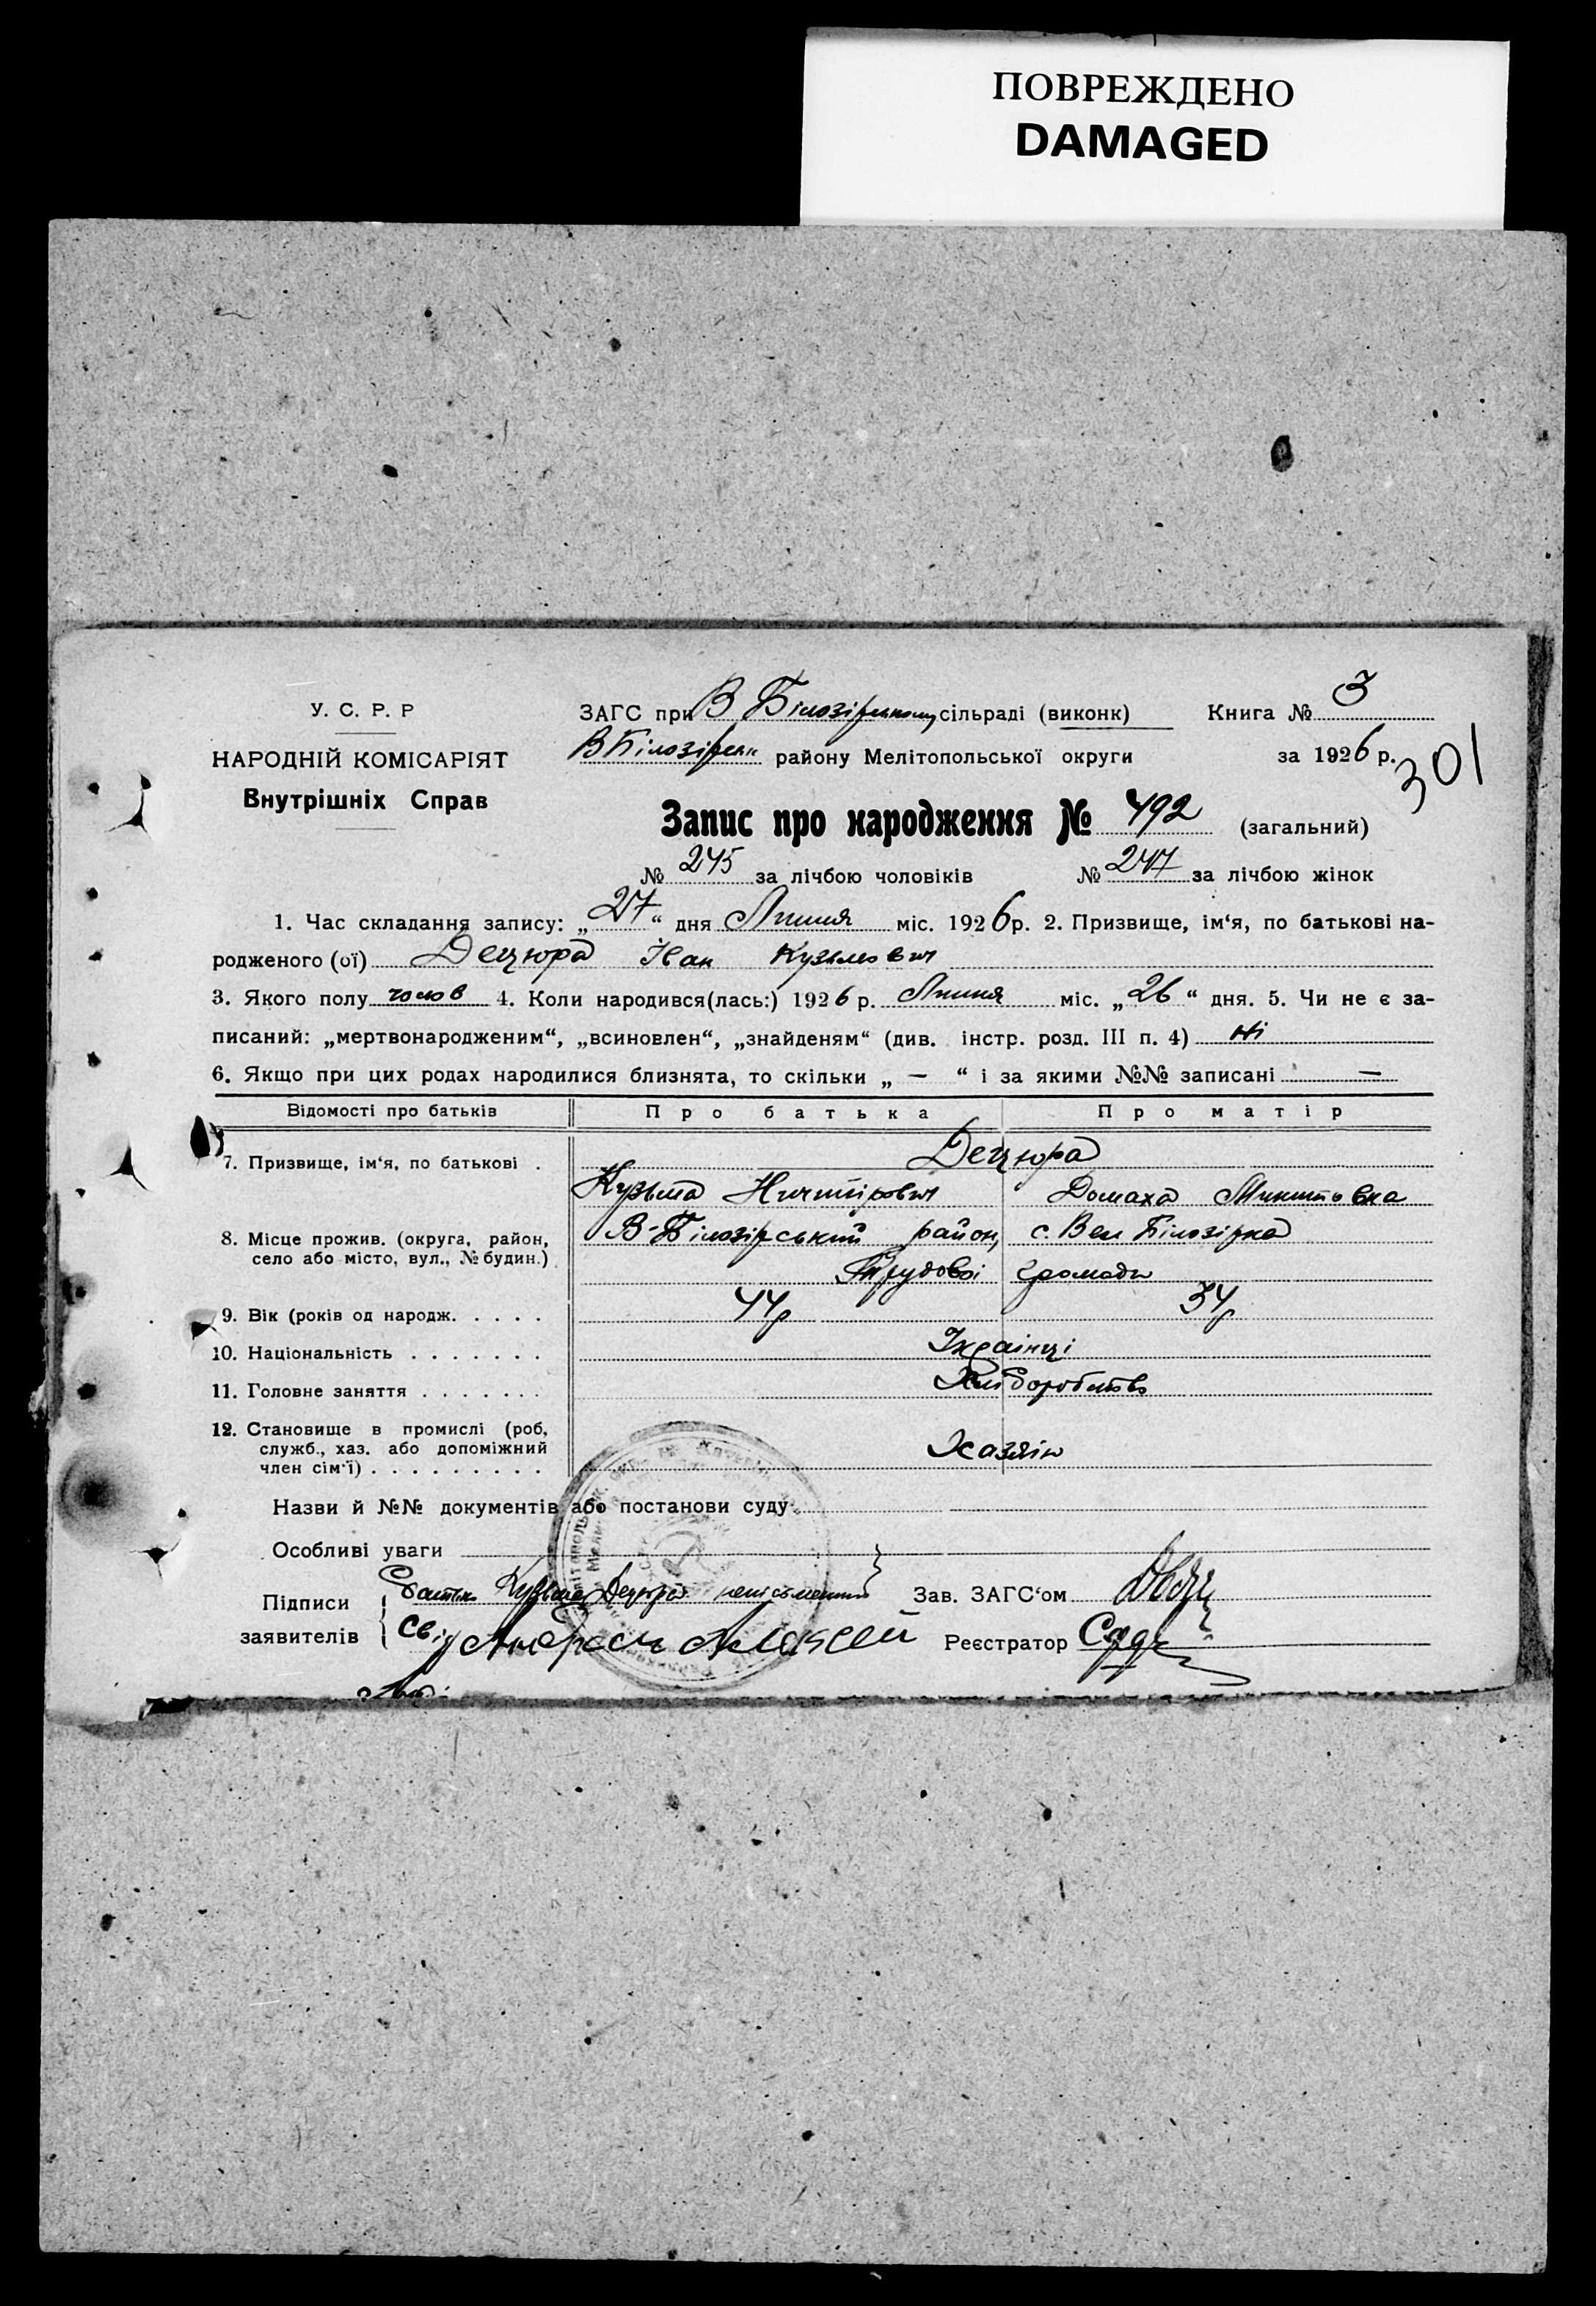 ПОВРЕЖДЕНО
DAMAGED
У. С. Р. Р
НАРОДНІЙ КОМІСАРІЯТ
Внутрішніх Справ
ЗАГС при В Білозірському сільраді (виконк) Книга № 3
В Білозірськ району Мелітопольської округи за 1926 р.
301
Запис про народження № 492 (загальний)
№ 245 за лічбою чоловіків № 247 за лічбою жінок
1. Час складання запису: „27“ дня Липня міс. 1926 р. 2. Призвище, ім‘я, по батькові на-
родженого (ої) Децюра Іван Кузьмович
3. Якого полу чолов 4. Коли народився(лась:) 1926 р. Липня міс. „26“ дня. 5. Чи не є за-
писаний: „мертвонародженим“, „всиновлен“, „знайденям“ (див. інстр. розд. III п. 4) ні
6. Якщо при цих родах народилися близнята, то скільки „ — “ і за якими №№ записані —
Відомості про батьків Про батька Про матір
7. Призвище, ім‘я, по батькові . Децюра
Кузьма Ничипірович Домаха Микитовна
8. Місце прожив. (округа, район, село або місто, вул., № будин.) В-Білозірський район, с. Вел Білозірка
Трудової громади
9. Вік (років од народж. . . . . 44р 34р
10. Національність . . . . . . . Українці
11. Головне заняття . . . . . . . Хліборобство
12. Становище в промислі (роб,
служб., хаз. або допоміжний
член сім‘ї) . . . . . . . . . Хазяін
Назви й №№ документів або постанови суду
Особливі уваги
Підписи заявителів Батько Кузьма Децюра неписьменний Зав. ЗАГС‘ом
Свід Андрей Алексей Реєстратор